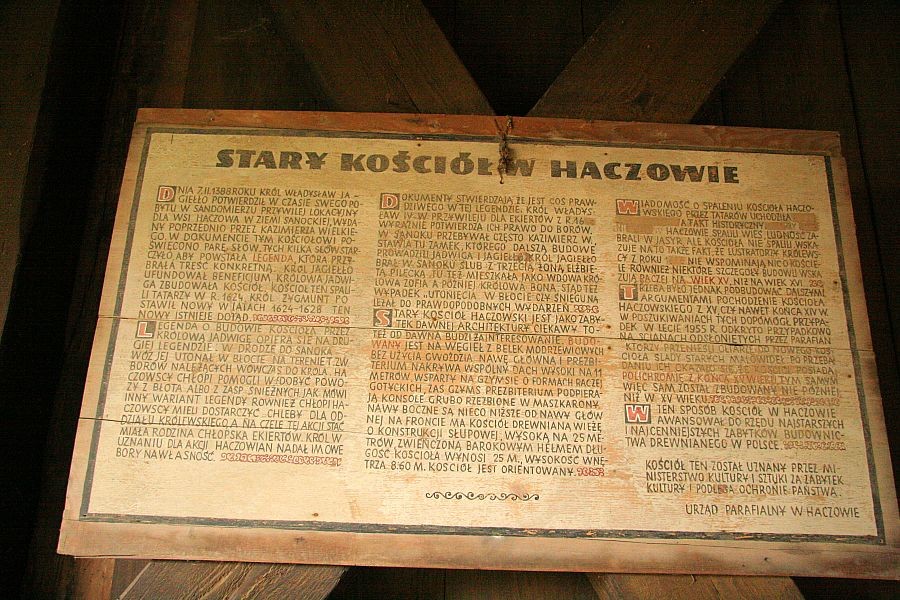 STARY KOŚCIÓŁ W HACZOWIE
DNIA 7.II.1388 ROKU KRÓL WŁADYSŁAW JA-
GIEŁŁO POTWIERDZIŁ W CZASIE SWEGO PO-
BYTU W SANDOMIERZU PRZYWILEJ LOKACYJNY
DLA WSI HACZOWA W ZIEMI SANOCKIEJ, WYDA-
NY POPRZEDNIO PRZEZ KAZIMIERZA WIELKIE-
GO. W DOKUMENCIE TYM KOŚCIOŁOWI PO-
ŚWIĘCONO PARĘ SŁÓW. TYCH KILKA SŁÓW STAR-
CZYŁO ABY POWSTAŁA LEGENDA, KTÓRA PRZY-
BRAŁA TREŚĆ KONKRETNĄ. KRÓL JAGIEŁŁO
UFUNDOWAŁ BENEFICIUM KRÓLOWA JADWI-
GA ZBUDOWAŁA KOŚCIÓŁ. KOŚCIÓŁ TEN SPALI-
LI TATARZY W R. 1624. KRÓL ZYGMUNT PO-
STAWIŁ NOWY W LATACH 1624-1628 TEN
NOWY ISTNIEJE DOTĄD.
LEGENDA O BUDOWIE KOŚCIOŁA PRZEZ
KRÓLOWĄ JADWIGĘ OPIERA SIĘ NA DRU-
GIEJ LEGENDZIE: W DRODZE DO SANOKA
WÓZ JEJ UTONĄŁ W BŁOCIE. JAKO TERENIE TZW.
BORÓW NALEŻĄCYCH WÓWCZAS DO KRÓLA. HA-
CZOWSCY CHŁOPI POMOGLI WYDOBYĆ POWO-
ZY Z BŁOTA ALBO Z ZASP ŚNIEŻNYCH JAK MÓWI
INNY WARIANT LEGENDY. RÓWNIEŻ CHŁOPI HA-
CZOWSCY MIELI DOSTARCZYĆ CHLEBY DLA OD-
DZIAŁU KRÓLEWSKIEGO, A NA CZELE TEJ AKCJI STAĆ
MIAŁA RODZINA CHŁOPSKA EKIERTÓW. KRÓL W
UZNANIU DLA AKCJI HACZOWIAN NADAŁ IM OWE
BORY NA WŁASNOŚĆ.
DOKUMENTY STWIERDZAJĄ, ŻE JEST COŚ PRAW-
DZIWEGO W TEJ LEGENDZIE. KRÓL WŁADYS-
ŁAW IV W PRZYWILEJU DLA EKIERTÓW Z R. 16
WYRAŹNIE POTWIERDZA ICH PRAWO DO BORÓW.
W SANOKU PRZEBYWAŁ CZĘSTO KAZIMIERZ W.
STAWIA TU ZAMEK, KTÓREGO DALSZĄ BUDOWĘ
PROWADZILI JADWIGA I JAGIEŁŁO. KRÓL JAGIEŁŁO
BRAŁ W SANOKU ŚLUB Z TRZECIĄ ŻONĄ, ELŻBIE-
TĄ PILECKĄ. TU TEŻ MIESZKAŁA JAKO WDOWA KRÓ-
LOWA ZOFIA A PÓŹNIEJ KRÓLOWA BONA. STĄD TEŻ
WYPADEK „UTONIĘCIA" W BŁOCIE CZY ŚNIEGU NA-
LEŻAŁ DO PRAWDOPODOBNYCH WYDARZEŃ.
STARY KOŚCIÓŁ HACZOWSKI JEST JAKO ZABY-
TEK DAWNEJ ARCHITEKTURY CIEKAWY. TO-
TEŻ OD DAWNA BUDZI ZAINTERESOWANIE. BUDO-
WANY JEST NA WĘGIEŁ Z BELEK MODRZEWIOWYCH
BEZ UŻYCIA GWOŹDZIA. NAWĘ GŁÓWNĄ I PREZBI-
TERIUM NAKRYWA WSPÓLNY, DACH WYSOKI NA 11
METRÓW WSPARTY NA GZYMSIE O FORMACH RACZEJ
GOTYCKICH, ZAŚ GZYMS PREZBITERIUM PODPIERA-
JĄ KONSOLE GRUBO RZEŹBIONE W MASZKARONY.
NAWY BOCZNE SĄ NIECO NIŻSZE OD NAWY GŁÓW-
NEJ. NA FRONCIE MA KOŚCIÓŁ DREWNIANĄ WIEŻĘ
O KONSTRUKCJI SŁUPOWEJ, WYSOKĄ NA 25 ME-
TRÓW, ZWIEŃCZONĄ BAROKOWYM HEŁMEM. DŁU-
GOŚĆ KOŚCIOŁA WYNOSI 25 M, WYSOKOŚĆ WNĘ-
TRZA 8.60 M. KOŚCIÓŁ JEST ORIENTOWANY.
WIADOMOŚĆ O SPALENIU KOŚCIOŁA HACZO-
WSKIEGO PRZEZ TATARÓW UCHODZIŁA
ZA FAKT HISTORYCZNY
HACZOWIE SPALILI WIEŚ, LUDNOŚĆ ZA-
BRALI W JASYR, ALE KOŚCIOŁA NIE SPALILI. WSKA-
ZUJE NA TO TAKŻE FAKT, ŻE LUSTRATORZY KRÓLEWS-
CY Z ROKU NIE WSPOMINAJĄ NIC O KOŚCIE-
LE. RÓWNIEŻ NIEKTÓRE SZCZEGÓŁY BUDOWY WSKA-
ZUJĄ RACZEJ NA WIEK XV, NIŻ NA WIEK XVI.
TRZEBA BYŁO JEDNAK PODBUDOWAĆ DALSZYMI
ARGUMENTAMI POCHODZENIE KOŚCIOŁA
HACZOWSKIEGO Z XV, CZY NAWET KOŃCA XIV W.
W POSZUKIWANIACH TYCH DOPOMÓGŁ PRZYPA-
DEK. W LECIE 1955 R. ODKRYTO PRZYPADKOWO
NA ŚCIANACH ODSŁONIĘTYCH PRZEZ PARAFIAN
KTÓRZY PRZENIEŚLI OŁTARZE DO NOWEGO KOŚ-
CIOŁA ŚLADY STARYCH MALOWIDEŁ. PO ZBADA-
NIU ICH OKAZAŁO SIĘ, ŻE KOŚCIÓŁ POSIADA
POLICHROMIĘ Z KOŃCA XV WIEKU. TYM SAMYM
WIĘC SAM ZOSTAŁ ZBUDOWANY NIE PÓŹNIEJ
NIŻ W XV WIEKU.
W TEN SPOSÓB KOŚCIÓŁ W HACZOWIE
AWANSOWAŁ DO RZĘDU NAJSTARSZYCH
I NAJCENNIEJSZYCH ZABYTKÓW BUDOWNIC-
TWA DREWNIANEGO W POLSCE.
KOŚCIÓŁ TEN ZOSTAŁ UZNANY PRZEZ MI-
NISTERSTWO KULTURY I SZTUKI ZA ZABYTEK
KULTURY I PODLEGA OCHRONIE PAŃSTWA.
URZĄD PARAFIALNY W HACZOWIE